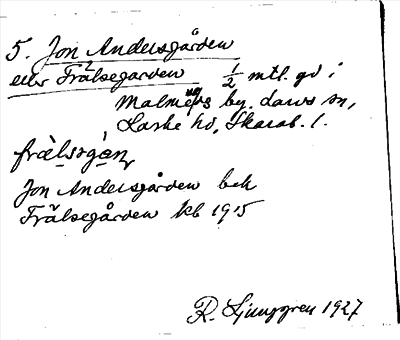 5. Jon Andersgården
eller Frälsegården ½ mtl. gd i
Malmens by, Larvs sn,
Laske hd, Skarab. l.
fræ̀lsəgàn̥
Jon Andersgården bek
Frälsegården kb 1915
R. Ljunggren 1927